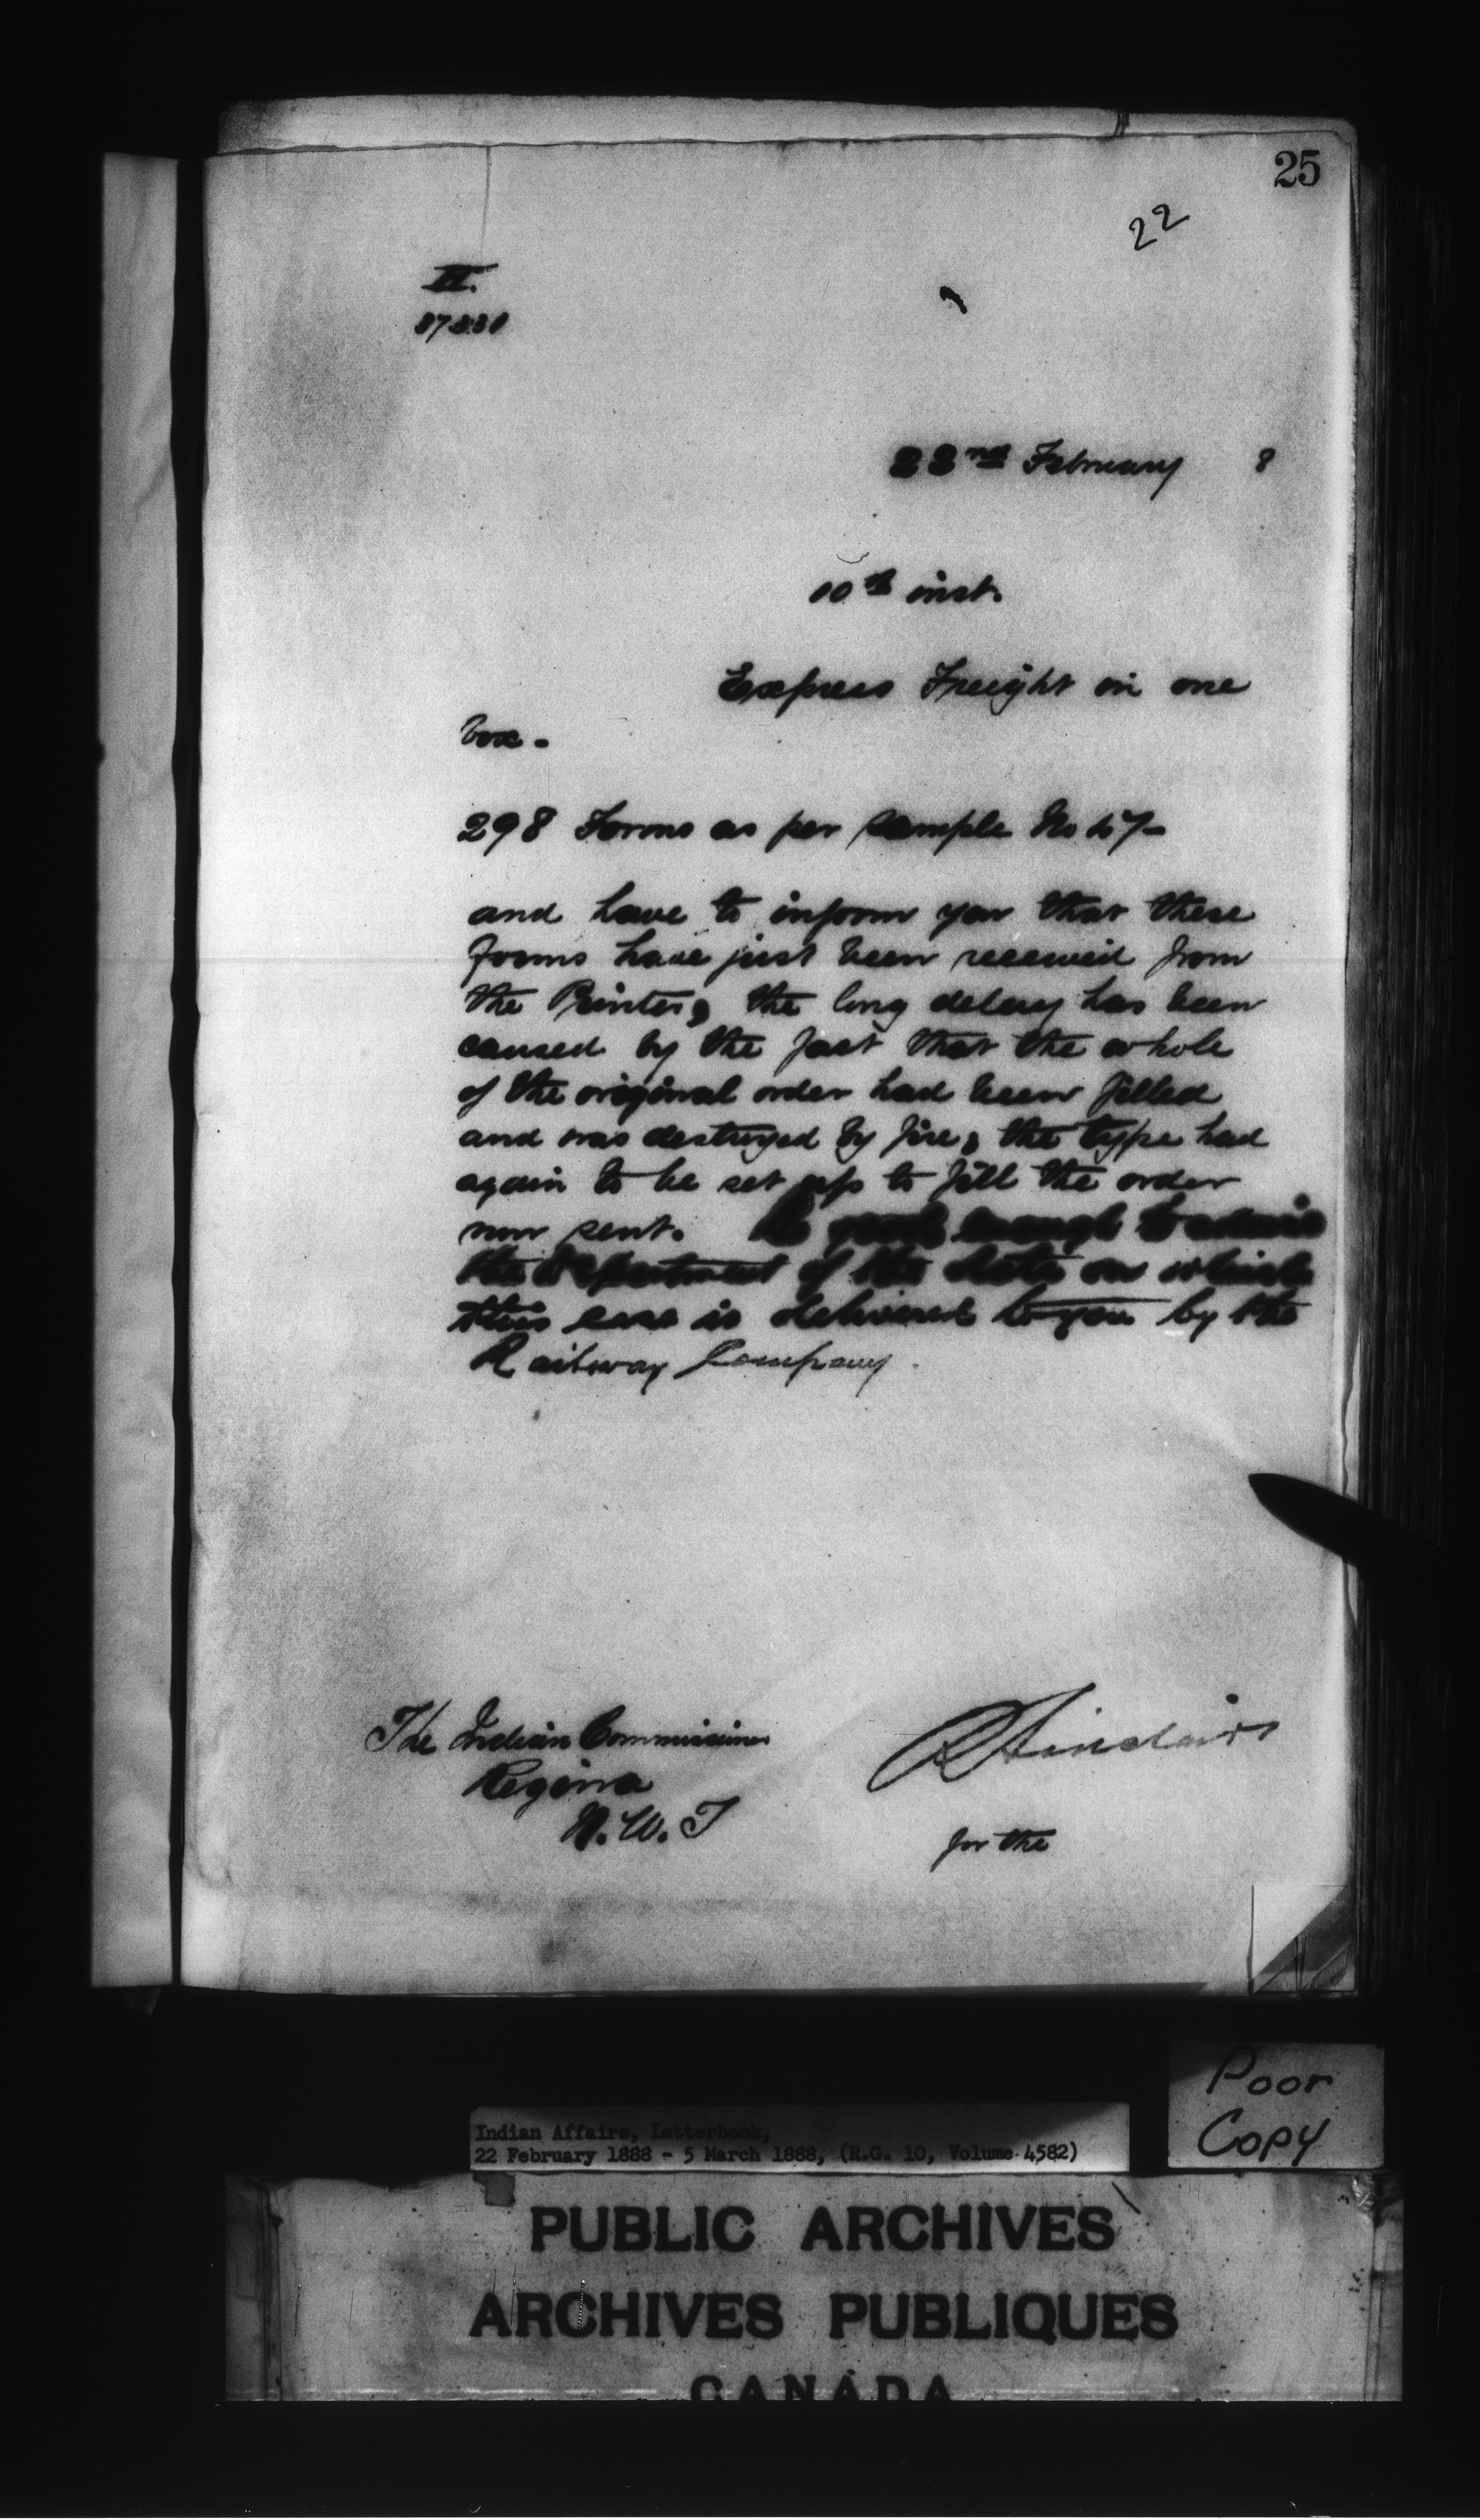 25
22
II.
22nd February 8
10th inst.
Express Freight in one
box.
298 Forms as per sample No
and have to inform you that these
forms have just been received from
the Printer, the long delay has been
caused by the fact that the whole
of the original order had been filled
and was destroyed by fire, the type had
again to be set up to fill the order
now sent. Be good enough to advise
the Department of the date on which
this case is delivered to you by the
Railway Company.
The Indian Commissioner
Regina
N.W.T
R Sinclair
for the
Poor
Copy
Indian Affairs, Letterbook,
22 February 1888 - 5 March 1888, (R.G. 10, Volume 4582)
PUBLIC ARCHIVES
ARCHIVES PUBLIQUES
CANADA